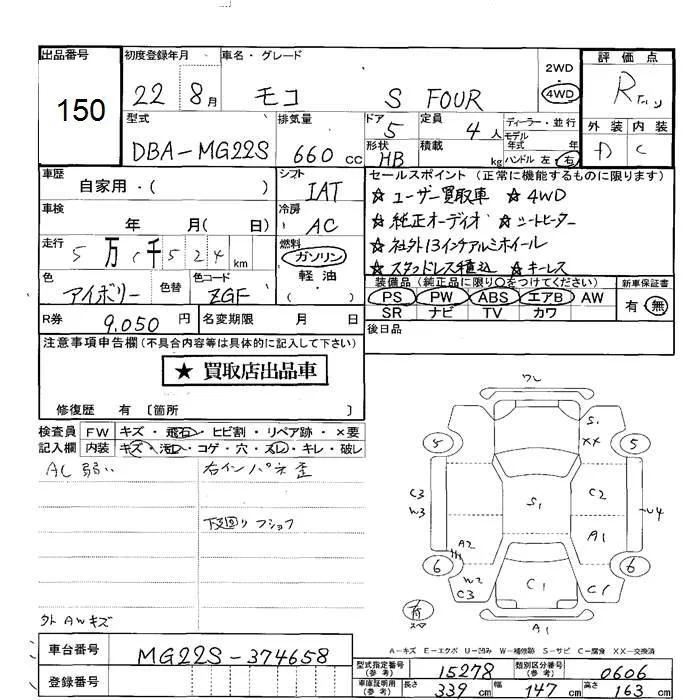 出品番号
150
初度登録年月
22 8月
車名・グレード
モコ S FOUR
2WD
4WD
評価点
R
外装 内装
A C
型式
DBA-MG22S
排気量
660 cc
ドア
5
形状
HB
定員
4人
積載
kg
ディーラー・並行
モデル
年式 年
ハンドル 左・右
車歴
自家用・( )
シフト
IAT
車検
年 月( 日)
冷房
AC
走行
5万 千524 km
燃料
ガソリン
軽油
( )
色
アイボリー
色替
色コード
ZGF
R券 9,050 円
名変期限 月 日
セールスポイント (正常に機能するものに限ります)
☆ ユーザー買取車 ☆ 4WD
☆ 純正オーディオ ☆ シートヒーター
☆ 社外13インチアルミホイール
☆ スタッドレス積込 ☆ キーレス
装備品 (純正品に限り〇をつけてください)
PS PW ABS エアB AW
SR ナビ TV カワ
新車保証書
有・無
後日品
注意事項申告欄(不具合内容等は具体的に記入して下さい)
★ 買取店出品車
修復歴 有 〔箇所 〕
検査員
記入欄
FW キズ・飛石・ヒビ割・リペア跡・×要
内装 キズ・汚レ・コゲ・穴・スレ・キレ・破レ
AC弱い
右インパネ歪
下廻りフショク
外 AWキズ
ワレ
S1
XX
5
5
C3
W3
S1
C2
U4
A1
A2
6
6
W2
C3
C1
C1
有
スペア
A1
A-キズ E-エクボ U-凹み W-補修跡 S-サビ C-腐食 XX-交換済
車台番号
MG22S-374658
登録番号
型式指定番号
(参考)
15278
類別区分番号
(参考)
0606
車庫証明用
(参考)
長さ 339 cm
幅 147 cm
高さ 163 cm